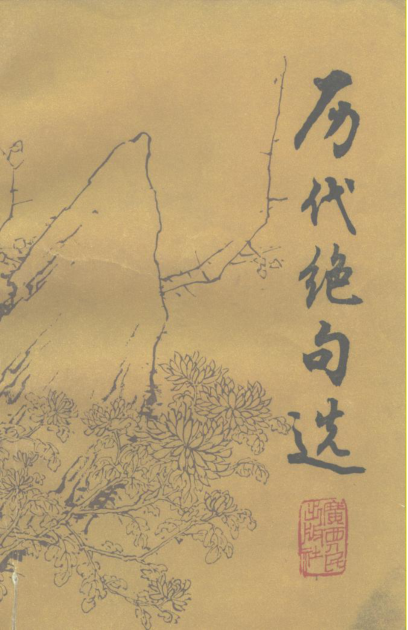 历代绝句选
廣西人民
出版社